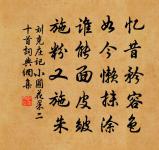 忆昔矜容色
如今懒抹涂
谁能面皮皱
施粉又施朱
刘克庄记小圃花果二
十首词典网集